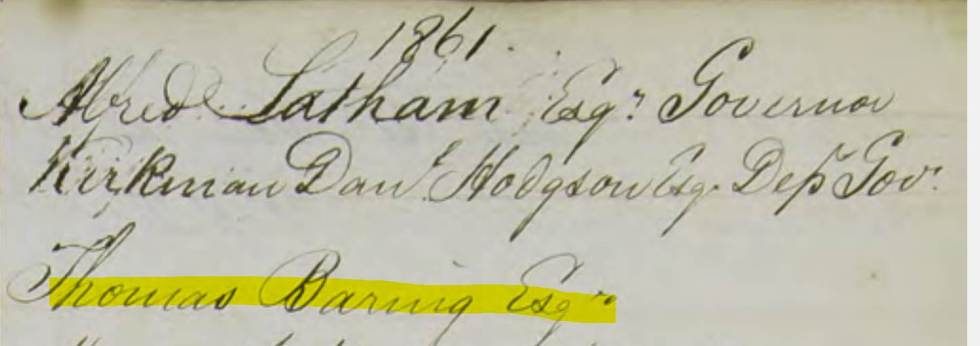 1861.
Alfred Latham Esqr. Governor
Kirkman Danl. Hodgson Esq. Dep Gov.
Thomas Baring Esqr